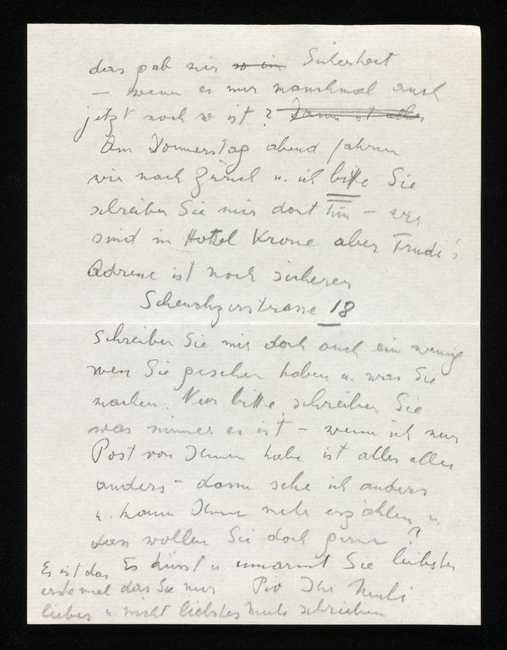 das gab mir so ein Sicherheit
– wenn es nur manchmal auch
jetzt noch so ist? Dann ist alles
Am Donnerstag abend fahren
wir nach Zürich u. ich bitte Sie
schreiben Sie mir dort hin – wir
sind im Hotel Krone aber Trudi's
Adresse ist noch sicherer
Scheuchzerstrasse 18
Schreiben Sie mir doch auch ein wenig
wen Sie gesehen haben u. was Sie
machen. bitte schreiben Sie
was immer es ist – wenn ich nur
Post von Ihnen habe ist alles alles
anders – dann sehe ich anders
u. kann Ihnen mehr erzählen u.
das wollen Sie doch gerne?
Es küsst u umarmt Sie liebster
Ihr Muli
Es ist das
erste mal das Sie nur
liebes u nicht liebstes Muli schreiben